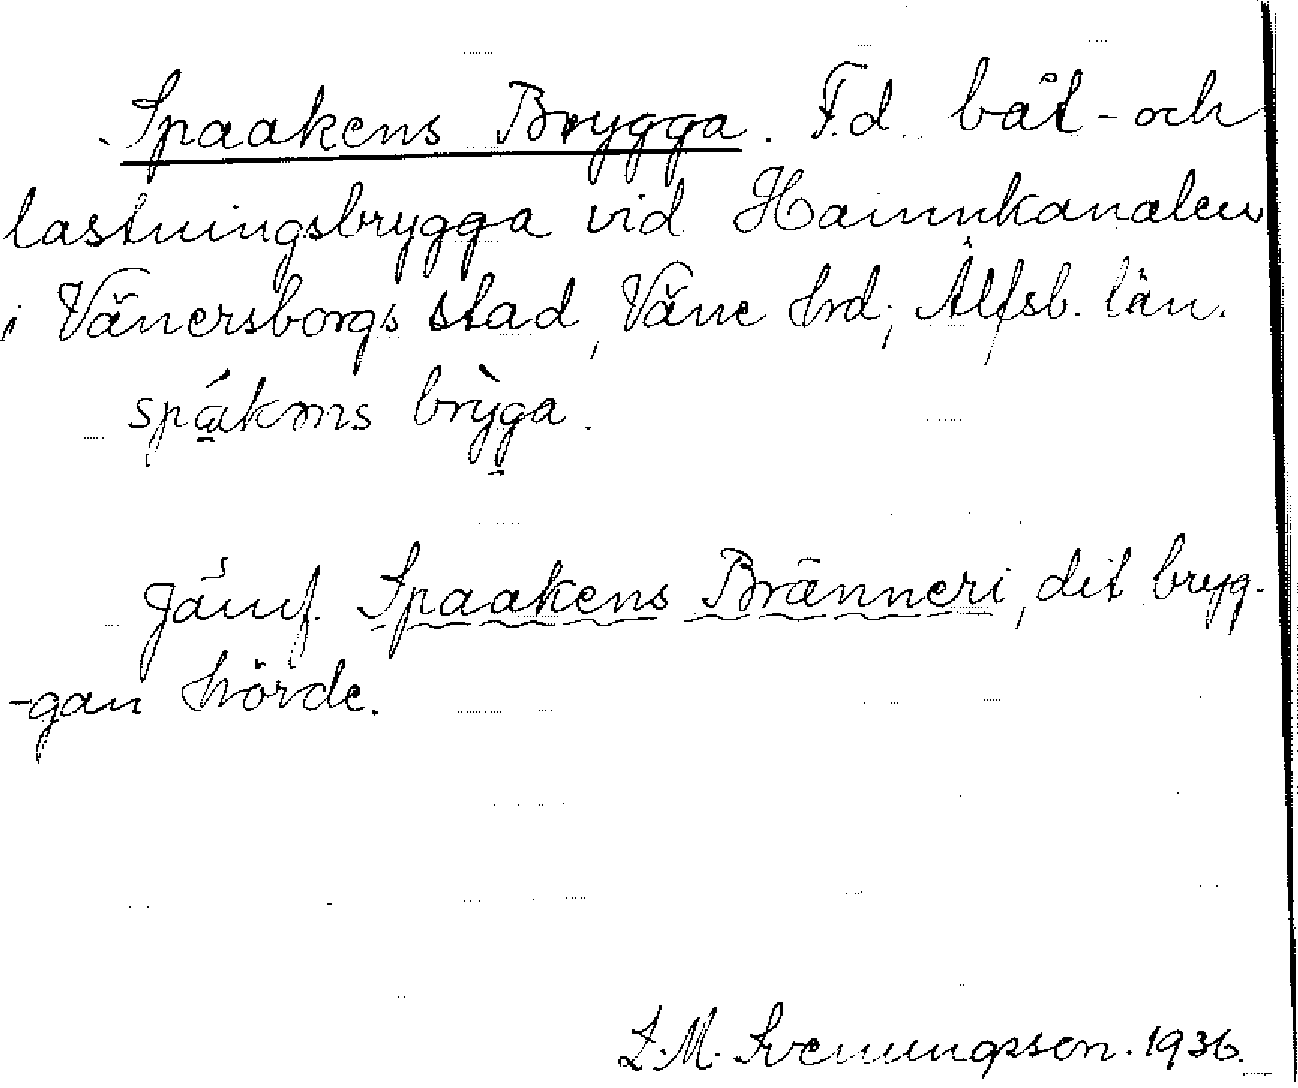 Spaakens Brygga. F.d. båt- och
lastningsbrygga vid Hamnkanalen
i Vänersborgs stad, Väne hrd; Älfsb. län.
brỳga.
Jämf. Spaakens Bränneri, dit bryg-
-gan hörde.
L.M. Svenungsson. 1936.